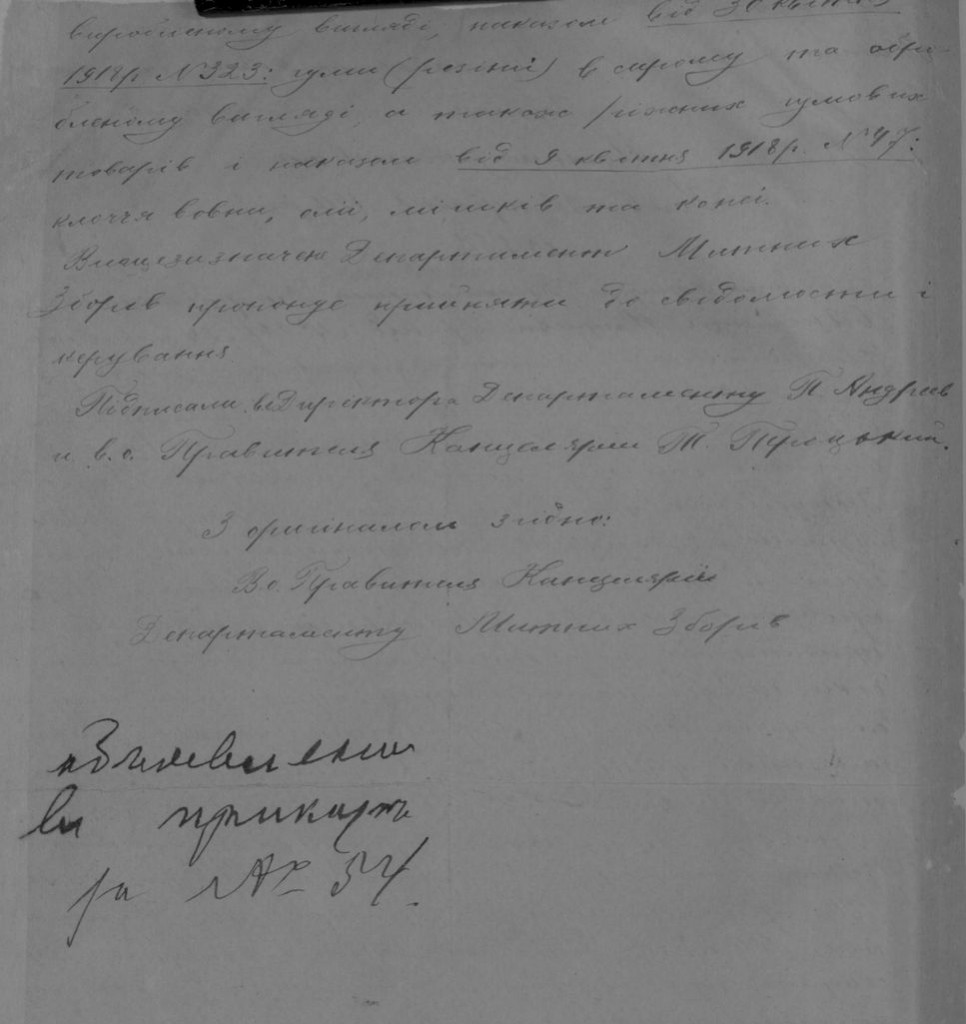 виробленому вигляді, наказом від 30 квітня
1918 р. N 323: гуми (резини) в сирому та обро-
бленому вигляді, а також ріжних гумових
товарів і наказом від 9 квітня 1918 р. N 47:
клоччя вовни, олії, мішків та коней.
Вищезазначене Департамент Митних
Зборів пропонує прийняти до свідомости і
керування
Підписали: Директора Департаменту П Андрєєв
и в. о. Правителя Канцелярии Т.
З оригіналом згідно:
В.о. Правителя Канцелярії
Департаменту Митних Зборів
в приказ
за № 34.